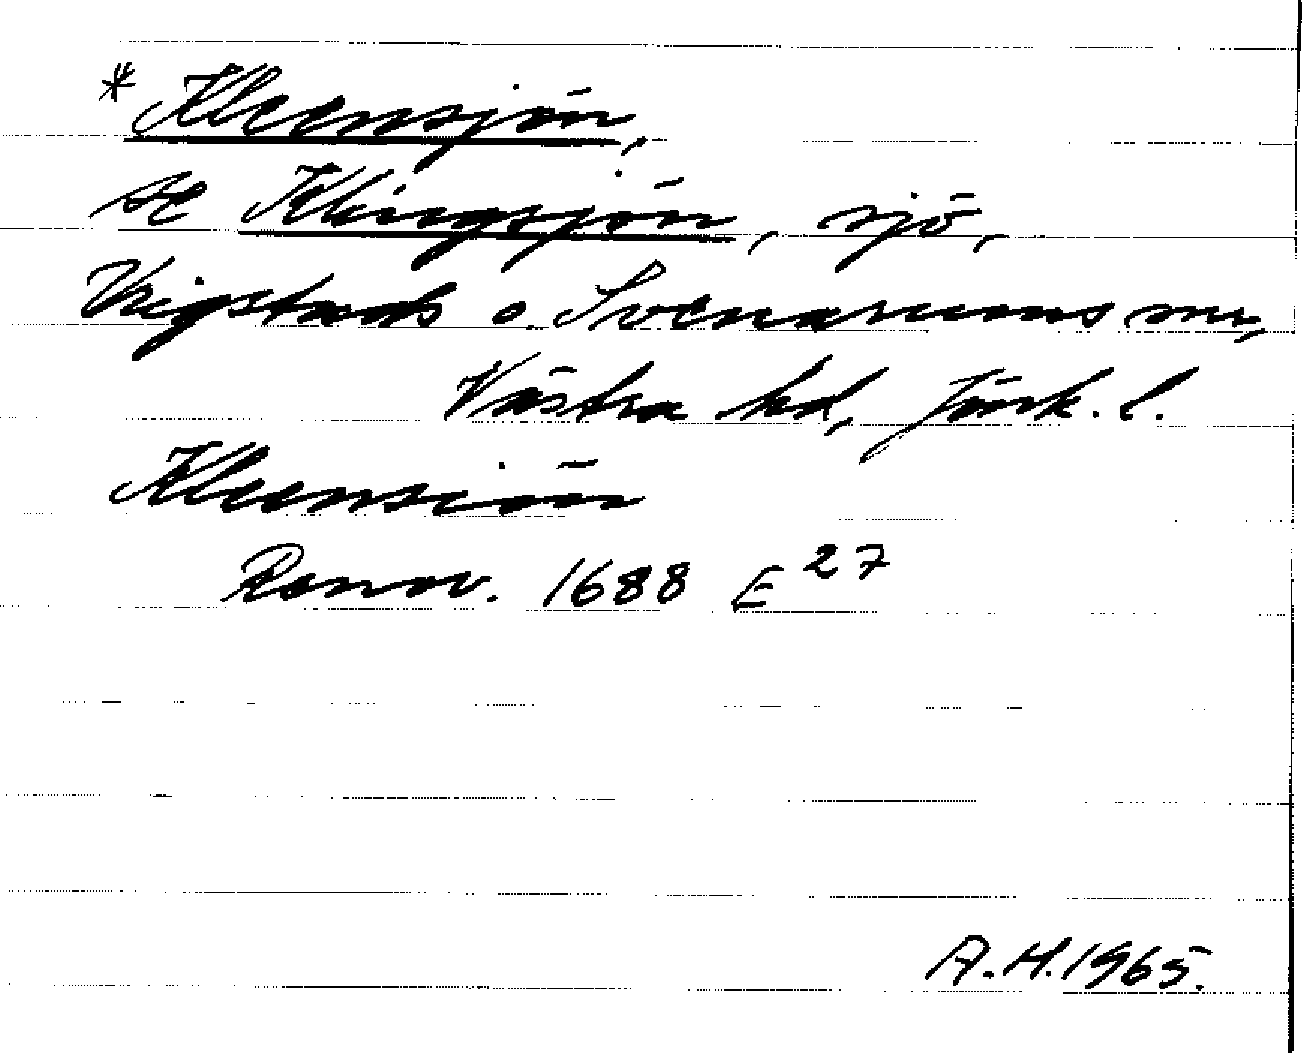 * Kleensjön,
se Klingsjön, sjö,
Vrigstads o. Svenarums snr,
Västra hd, Jönk. l.
Kleensiön
Renov. 1688 E 27
A.H. 1965.